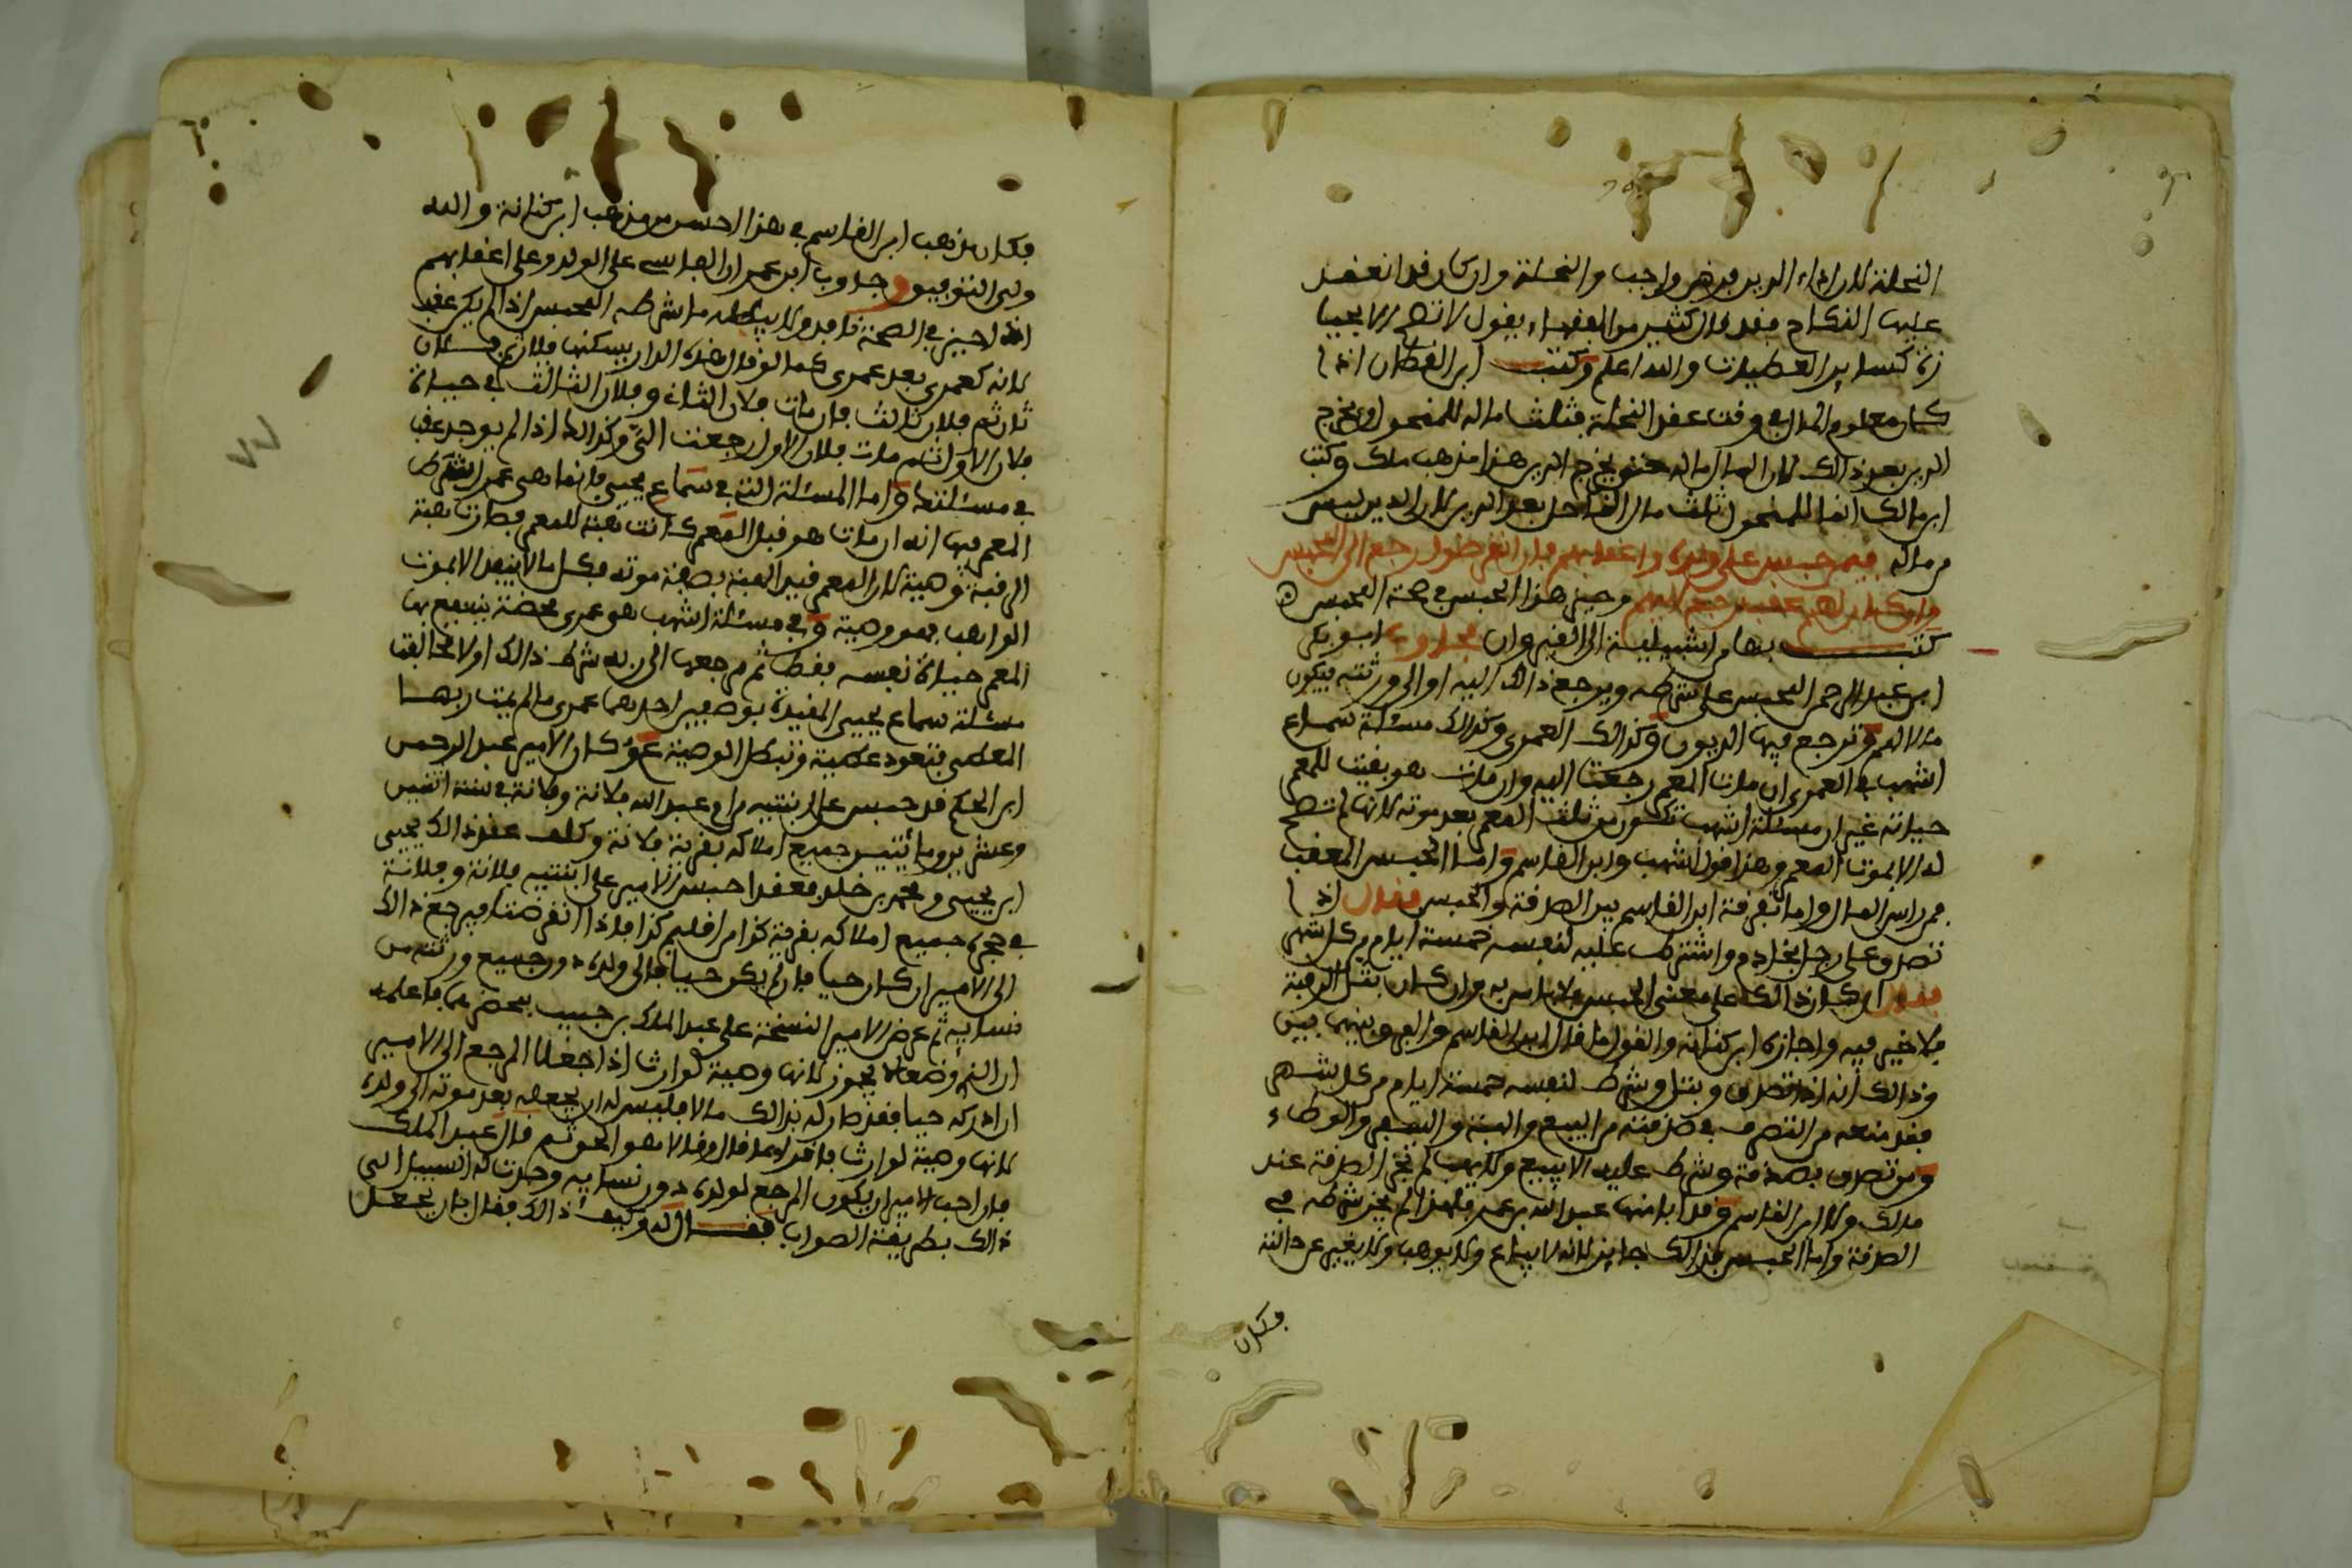 النحلة لان اداء الدين فرض واجب والنحلة وان كان قد انعقد
عليها النكاح فقد قال كثير من الفقهاء يقول لا تصح الا بحيا
زة كساير العطيات والله اعلم وكتب ابن القطان اذا
كان معلوم المال في وقت عقد النحلة فثلث ماله للمنحول او يخرج
الدين بعد ذالك لان المال ماله حتى يخرج الدين هذا مذهب ملك وكتب
ابن مالك انما للمنحول ثلث مال الناحل بعد الدين لان الدين ليس
من ماله فيمن حبس على ولده واعقابهم فان انقرضوا رجع الى المحبس
وان كان لهم عقب رجع اليهم وحيز هذا الحبس في صحة المحبس
كتب بها من اشبيلية الى القيروان فجاوب ابو بكر
ابن عبد الرحمن المحبس على شرطه ويرجع ذالك اليه او الى ورثته فيكون
مالا لهم وترجع فيها الديون وكذالك العمرى وكذالك مسئلة سماع
اشهب في العمرى ان مات المعمر رجعت اليه وان مات هو بقيت للمعمر
حياته غير ان مسئلة اشهب تكون من ثلث المعمر بعد موته لانها لم تصح
له الا بموت المعمر وهذا قول اشهب وابن القاسم واما الحبس المعقب
فمن راس المال واما تفرقة ابن القاسم بين الصدقة والحبس فقال اذا
تصدق على رجل بخادم واشترط عليه لنفسه خمسة ايام من كل شهر
فقال ان كان ذالك على معنى الحبس فلا باس به وان كان بتل الرقبة
فلا خير فيه واجازه ابن كنانة والقول ما قال ابن القاسم والفرق بينهما بين
وذالك انه اذا تصدق وبتل وشرط لنفسه خمسة ايام من كل شهر
فقد منعه من التصرف في صدقته من البيع والهبة والسفر والوطء
ومن تصدق بصدقة وشرط عليه الا يبيع ولا يهب لم تجز الصدقة عند
ملك ولا ابن القاسم وقد اباحها عبد الله بن عمر فلهذا لم يجز شرطه في
الصدقة واما الحبس فذالك جايز لانه لا يباع ولا يوهب ولا يغير عن حالته
فكان
فكان مذهب ابن القاسم في هذا احسن من مذهب ابن كنانة والله
ولي التوفيق وجاوب ابو عمران الفاسي على الولد وعلى اعقابهم
اذا حيز في الصحة نافذ ولا يبطله ما شرطه المحبس اذا لم يكن عقب
لانه كعمرى بعد عمرى كما لو قال هذه الدار يسكنها فلان ثم فلان
ثان ثم فلان ثالث فان مات فلان الثاني وفلان الثالث في حياة
فلان الاول ثم مات فلان الاول رجعت الي وكذالك اذا لم يوجد عقب
في مسئلتك واما المسئلة التي في سماع يحيى فانما هي عمرى اشترط
المعمر فيها انه ان مات هو قبل المعمر كانت هبة للمعمر فصارت هبة
الرقبة وهبة لان المعمر قيد الهبة بصفة موته فكل ما لا ينفذ الا بموت
الواهب فهو وصية وفي مسئلة اشهب هو عمرى محضة ينتفع بها
المعمر حياة نفسه فقط ثم مرجعها الى ربه شرط ذالك اولا بخالفت
مسئلة سماع يحيى المقيدة بوصفين احدهما عمرى ما لم يمت ربها
المعطي فتعود عطية وتبطل الوصية وكان الامير عبد الرحمن
ابن الحكم قد حبس على ابنتيه من ام عبد الله فلانة وفلانة في سنة اثنين
وعشرين ومائتين جميع املاكه بقرية فلانة وكلف عقد ذالك يحيى
ابن يحيى ومحمد بن خلد فعقدا حبس الامير على ابنتيه فلانة وفلانة
في حجره جميع املاكه بقرية كذا من اقليم كذا فاذا انقرضتا فيرجع ذالك
الى الامير ان كان حيا فان لم يكن حيا فالى ولده دون جميع ورثته من
نسايه ثم عرض الامير النسخة على عبد الملك بن حبيب بمحضرهما فاعلمه
ان الشرط لا يجوز لانها وصية لوارث اذا جعلا المرجع الى الامير
ان ادركه حيا فقد صار له بذالك مالا فليس له ان يجعله بعد موته الى ولده
لانها وصية لوارث فاقرا بما قال وقالا هو الحق ثم قال عبد الملك
فان احب الامير ان يكون المرجع لولده دون نسايه وجدت له السبيل الى
ذالك بطريقة الصواب فقال له وكيف ذالك فقال بان يجعل